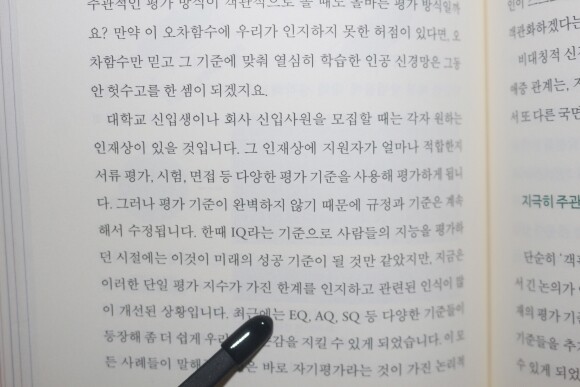 주관적인 평가 방식이 객관적으로 볼 때도 올바른 평가 방식일까
요? 만약 이 오차함수에 우리가 인지하지 못한 허점이 있다면, 오
차함수만 믿고 그 기준에 맞춰 열심히 학습한 인공 신경망은 그동
안 헛수고를 한 셈이 되겠지요.
대학교 신입생이나 회사 신입사원을 모집할 때는 각자 원하는
인재상이 있을 것입니다. 그 인재상에 지원자가 얼마나 적합한지
서류 평가, 시험, 면접 등 다양한 평가 기준을 사용해 평가하게 됩니
다. 그러나 평가 기준이 완벽하지 않기 때문에 규정과 기준은 계속
해서 수정됩니다. 한때 IQ라는 기준으로 사람들의 지능을 평가하
던 시절에는 이것이 미래의 성공 기준이 될 것만 같았지만, 지금은
이러한 단일 평가 지수가 가진 한계를 인지하고 관련된 인식이 많
이 개선된 상황입니다. 최근에는 EQ, AQ, SQ 등 다양한 기준들이
등장해 좀 더 쉽게 지킬 수 있게 되었습니다. 이로
든 사례들이 바로 자기평가라는 것이 가진 논리적
객관화하겠다는
비대칭적 신
애증 관계는, 지
서 또 다른 국면
지극히 주관
단순히 ‘객
서 긴 논의가
재의 평가 기준
기준들을 추
수 있게 되었